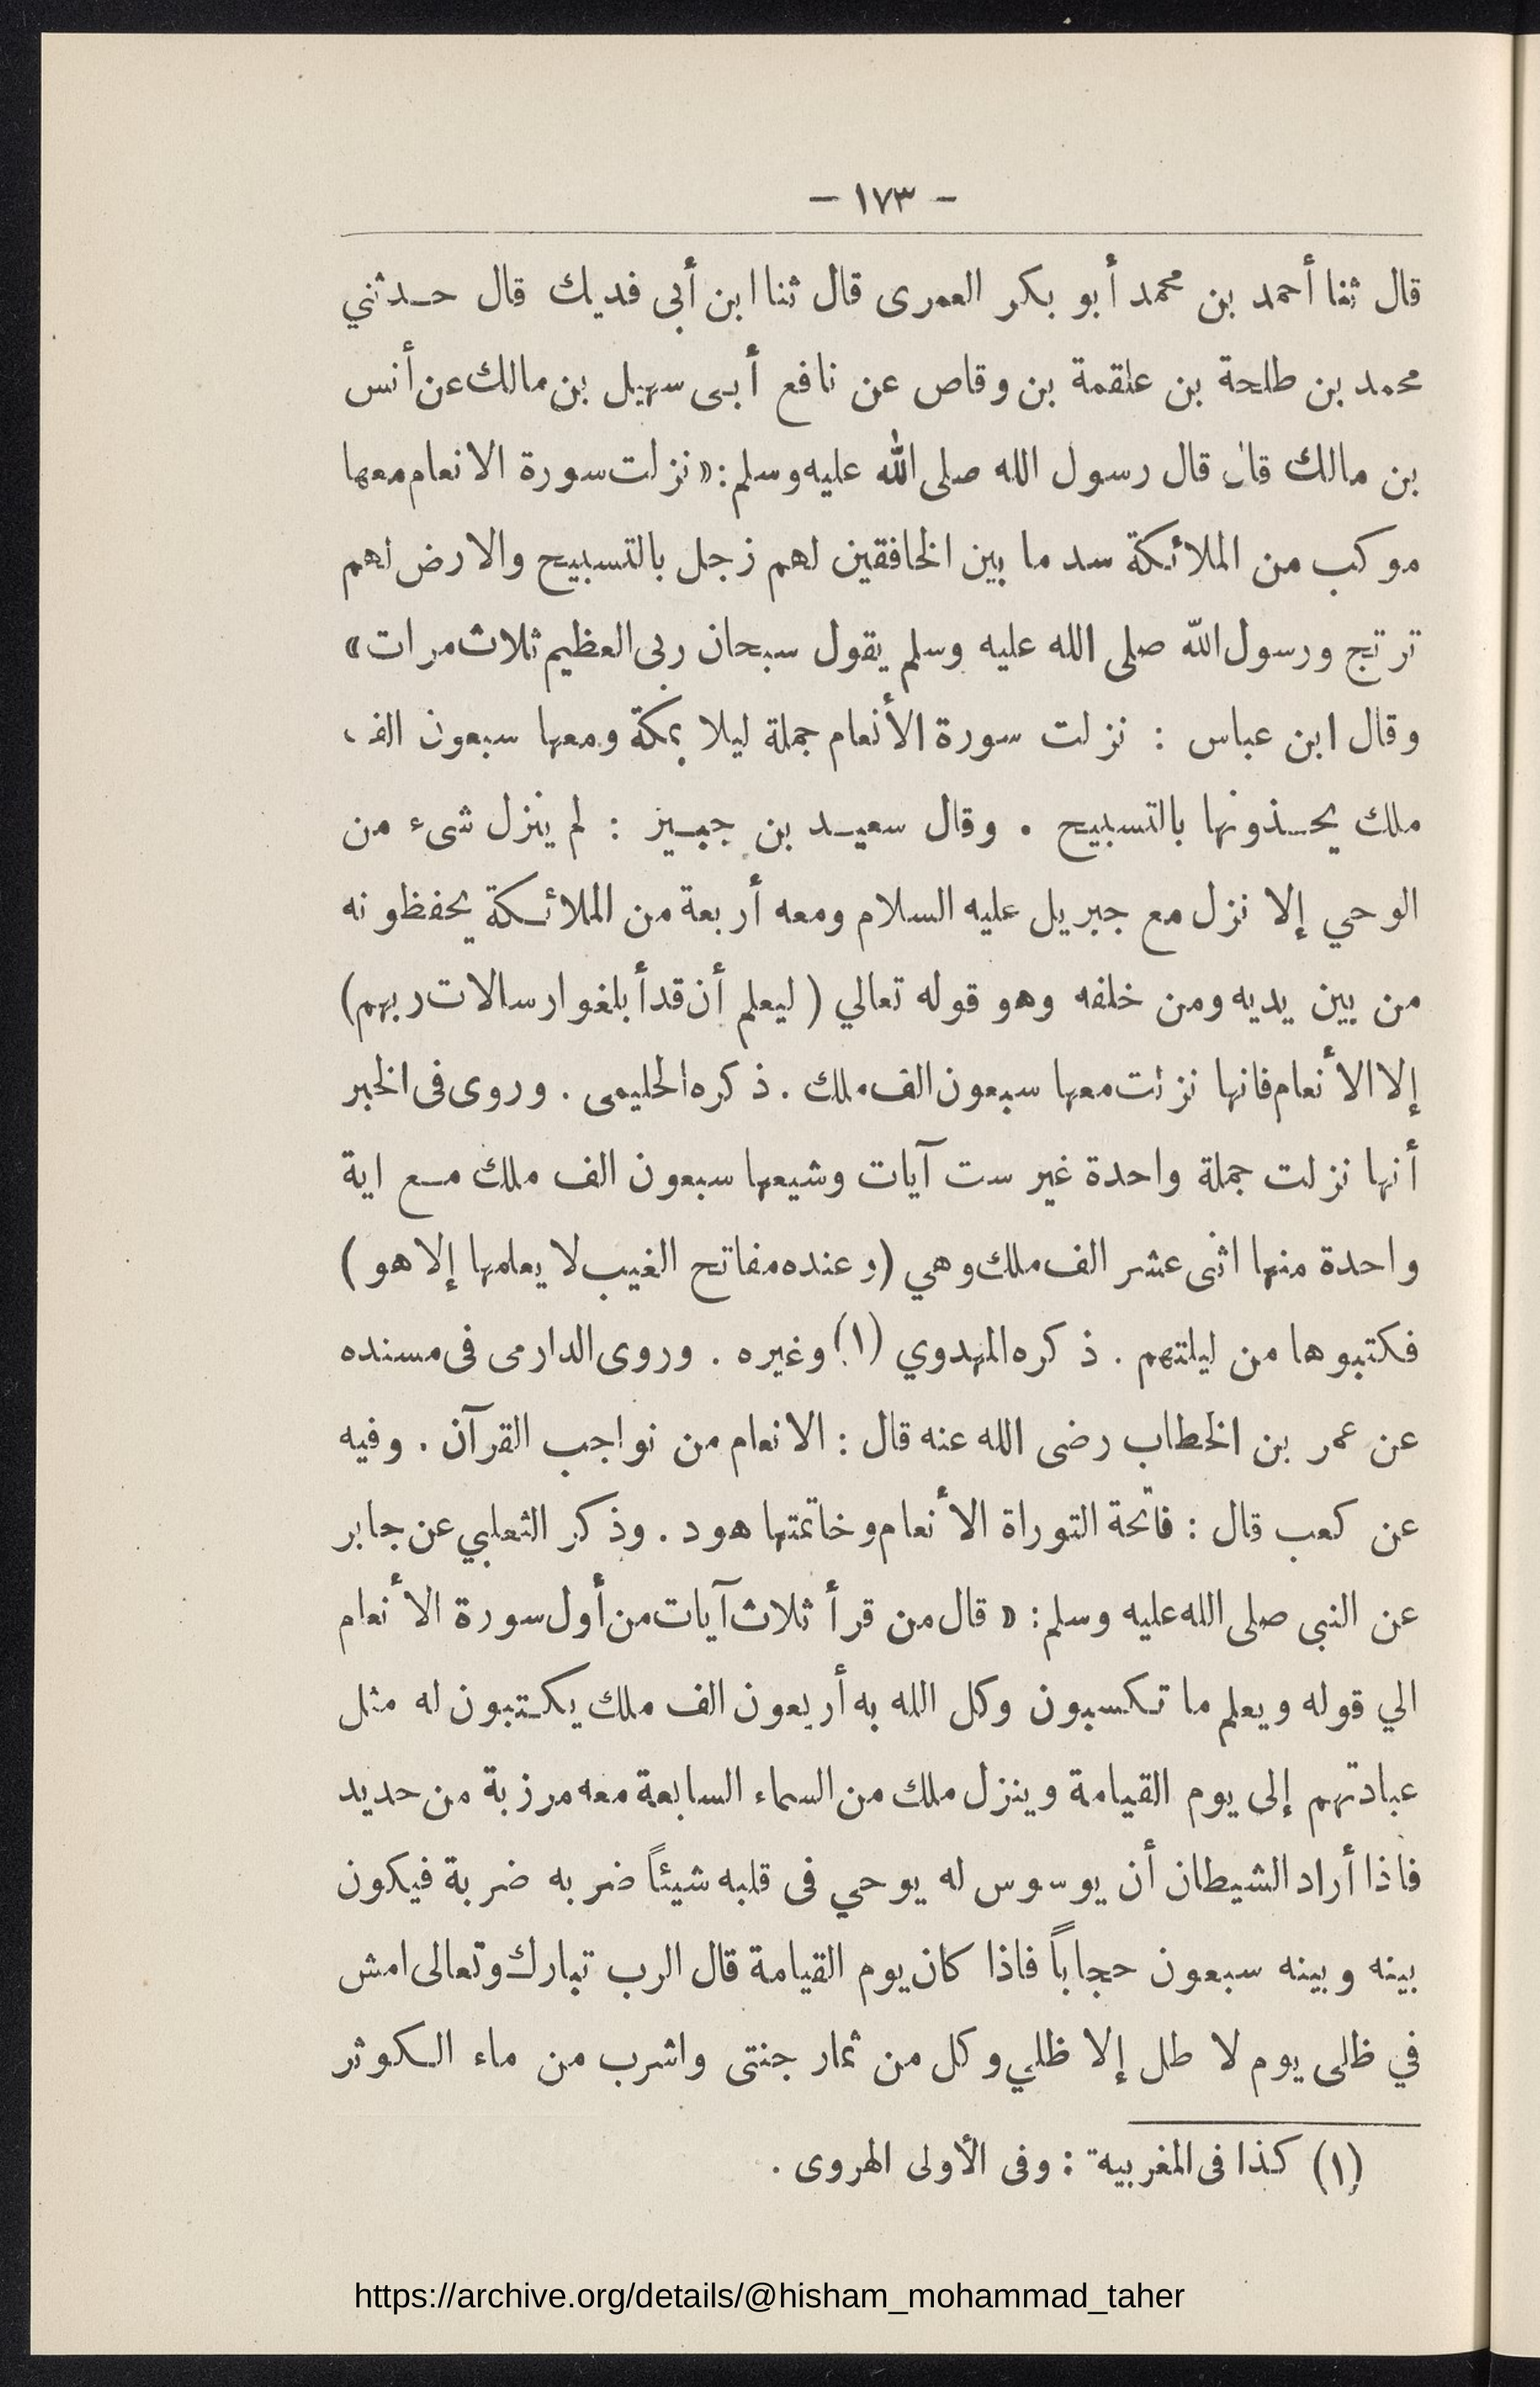 - ١٧٣ -
قال ثنا أحمد بن محمد أبو بكر العمرى قال ثنا ابن أبى فديك قال حدثني
محمد بن طلحة بن علقمة بن وقاص عن نافع أبى سهيل بن مالك عن أنس
بن مالك قال قال رسول الله صلى الله عليه وسلم: «نزلت سورة الانعام معها
موكب من الملائكة سد ما بين الخافقين لهم زجل بالتسبيح والارض لهم
ترتج ورسول الله صلى الله عليه وسلم يقول سبحان ربى العظيم ثلاث مرات»
وقال ابن عباس : نزلت سورة الأنعام جملة ليلا بمكة ومعها سبعون الف
ملك يحذونها بالتسبيح . وقال سعيد بن جبيز : لم ينزل شىء من
الوحي إلا نزل مع جبريل عليه السلام ومعه أربعة من الملائكة يحفظونه
من بين يديه ومن خلفه وهو قوله تعالي (ليعلم أن قد أبلغوا رسالات ربهم)
إلا الأنعام فانها نزلت معها سبعون الف ملك . ذكره الحليمى . وروى فى الخبر
أنها نزلت جملة واحدة غير ست آيات وشيعها سبعون الف ملك مع اية
واحدة منها اثنى عشر الف ملك وهي (وعنده مفاتح الغيب لا يعلمها إلا هو)
فكتبوها من ليلتهم . ذكره المهدوي (١) وغيره . وروى الدارمى فى مسنده
عن عمر بن الخطاب رضى الله عنه قال : الانعام من نواجب القرآن . وفيه
عن كعب قال : فاتحة التوراة الأنعام وخاتمتها هود . وذكر الثعلبي عن جابر
عن النبى صلى الله عليه وسلم: « قال من قرأ ثلاث آيات من أول سورة الأنعام
الي قوله ويعلم ما تكسبون وكل الله به أربعون الف ملك يكتبون له مثل
عبادتهم إلى يوم القيامة وينزل ملك من السماء السابعة معه مرزبة من حديد
فاذا أراد الشيطان أن يوسوس له يوحي فى قلبه شيئاً ضربه ضربة فيكون
بينه وبينه سبعون حجاباً فاذا كان يوم القيامة قال الرب تبارك وتعالى امش
في ظلى يوم لا طل إلا ظلي وكل من ثمار جنتى واشرب من ماء الكوثر
(١) كذا فى المغربية : وفى الأولى الهروى .
https://archive.org/details/@hisham_mohammad_taher